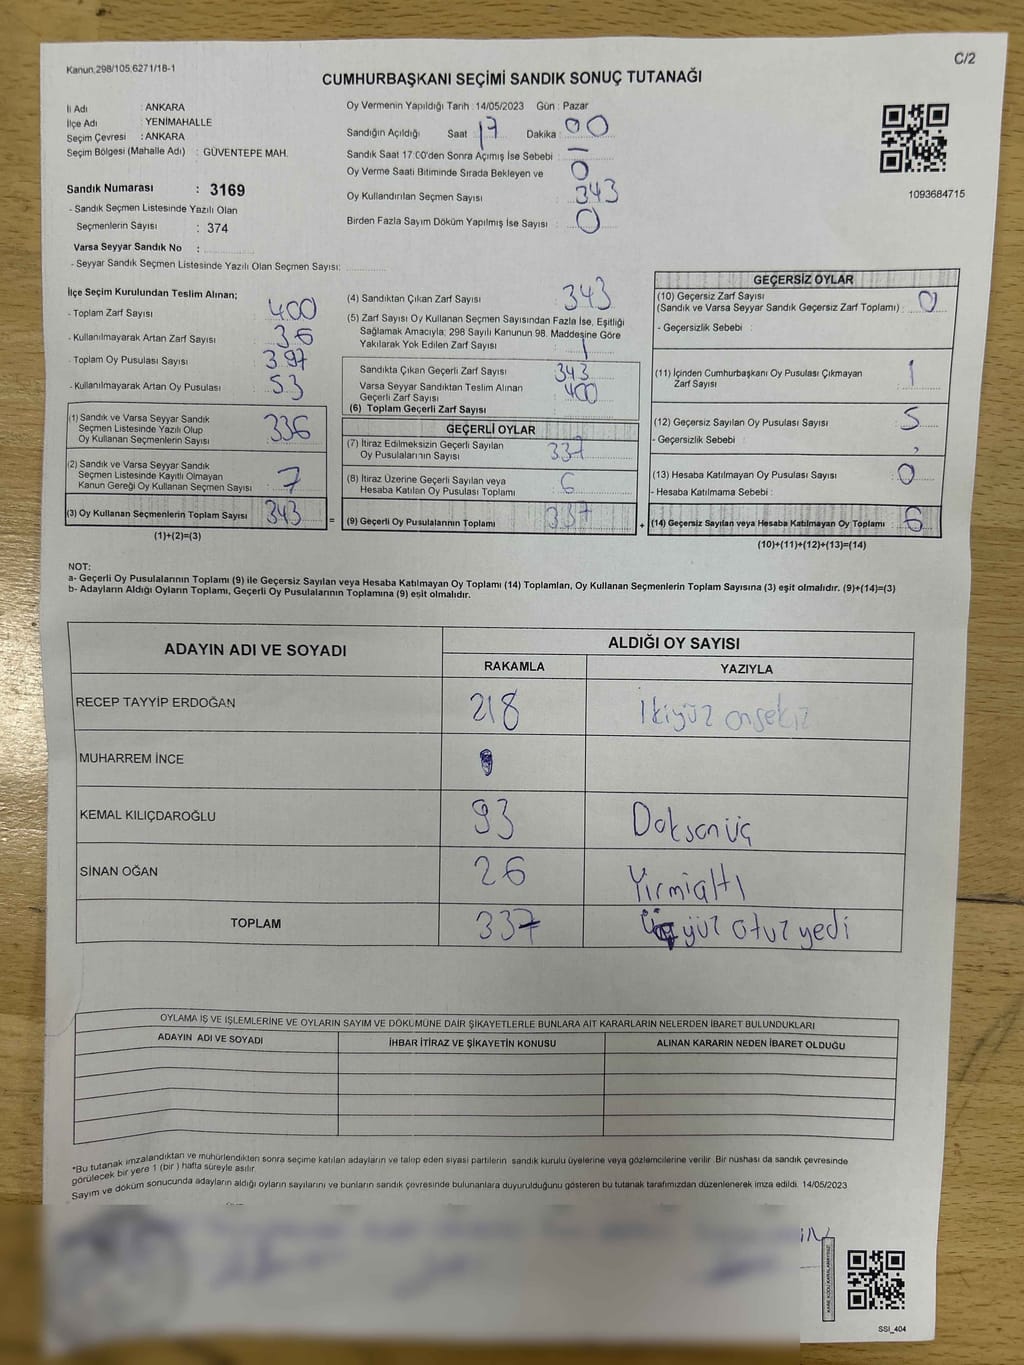 Kanun.298/105.6271/18-1
C/2
CUMHURBAŞKANI SEÇİMİ SANDIK SONUÇ TUTANAĞI
İl Adı : ANKARA
İlçe Adı : YENİMAHALLE
Seçim Çevresi : ANKARA
Seçim Bölgesi (Mahalle Adı) : GÜVENTEPE MAH.
Sandık Numarası : 3169
- Sandık Seçmen Listesinde Yazılı Olan
Seçmenlerin Sayısı : 374
Varsa Seyyar Sandık No :
- Seyyar Sandık Seçmen Listesinde Yazılı Olan Seçmen Sayısı:
Oy Vermenin Yapıldığı Tarih : 14/05/2023 Gün : Pazar
Sandığın Açıldığı Saat : 17 Dakika : 00
Sandık Saat 17:00'den Sonra Açımış İse Sebebi : —
Oy Verme Saati Bitiminde Sırada Bekleyen ve 0
Oy Kullandırılan Seçmen Sayısı : 343
Birden Fazla Sayım Döküm Yapılmış İse Sayısı : 0
1093684715
İlçe Seçim Kurulundan Teslim Alınan;
- Toplam Zarf Sayısı : 400
- Kullanılmayarak Artan Zarf Sayısı : 36
- Toplam Oy Pusulası Sayısı : 397
- Kullanılmayarak Artan Oy Pusulası : 53
(1) Sandık ve Varsa Seyyar Sandık
Seçmen Listesinde Yazılı Olup
Oy Kullanan Seçmenlerin Sayısı : 336
(2) Sandık ve Varsa Seyyar Sandık
Seçmen Listesinde Kayıtlı Olmayan
Kanun Gereği Oy Kullanan Seçmen Sayısı : 7
(3) Oy Kullanan Seçmenlerin Toplam Sayısı : 343
(1)+(2)=(3)
(4) Sandıktan Çıkan Zarf Sayısı : 343
(5) Zarf Sayısı Oy Kullanan Seçmen Sayısından Fazla İse, Eşitliği
Sağlamak Amacıyla; 298 Sayılı Kanunun 98. Maddesine Göre
Yakılarak Yok Edilen Zarf Sayısı :
Sandıkta Çıkan Geçerli Zarf Sayısı : 343
Varsa Seyyar Sandıktan Teslim Alınan
Geçerli Zarf Sayısı : 400
(6) Toplam Geçerli Zarf Sayısı
GEÇERLİ OYLAR
(7) İtiraz Edilmeksizin Geçerli Sayılan
Oy Pusulalarının Sayısı : 337
(8) İtiraz Üzerine Geçerli Sayılan veya
Hesaba Katılan Oy Pusulası Toplamı : 6
= (9) Geçerli Oy Pusulalarının Toplamı : 337 +
GEÇERSİZ OYLAR
(10) Geçersiz Zarf Sayısı
(Sandık ve Varsa Seyyar Sandık Geçersiz Zarf Toplamı) : 0
- Geçersizlik Sebebi :
(11) İçinden Cumhurbaşkanı Oy Pusulası Çıkmayan
Zarf Sayısı : 1
(12) Geçersiz Sayılan Oy Pusulası Sayısı : 5
- Geçersizlik Sebebi :
(13) Hesaba Katılmayan Oy Pusulası Sayısı : 0
- Hesaba Katılmama Sebebi :
(14) Geçersiz Sayılan veya Hesaba Katılmayan Oy Toplamı : 6
(10)+(11)+(12)+(13)=(14)
NOT:
a- Geçerli Oy Pusulalarının Toplamı (9) ile Geçersiz Sayılan veya Hesaba Katılmayan Oy Toplamı (14) Toplamları, Oy Kullanan Seçmenlerin Toplam Sayısına (3) eşit olmalıdır. (9)+(14)=(3)
b- Adayların Aldığı Oyların Toplamı, Geçerli Oy Pusulalarının Toplamına (9) eşit olmalıdır.
ADAYIN ADI VE SOYADI
ALDIĞI OY SAYISI
RAKAMLA YAZIYLA
RECEP TAYYİP ERDOĞAN 218 ikiyüz onsekiz
MUHARREM İNCE
KEMAL KILIÇDAROĞLU 93 Doksanüç
SİNAN OĞAN 26 Yirmialtı
TOPLAM 337 Üçyüz otuz yedi
OYLAMA İŞ VE İŞLEMLERİNE VE OYLARIN SAYIM VE DÖKÜMÜNE DAİR ŞİKAYETLERLE BUNLARA AİT KARARLARIN NELERDEN İBARET BULUNDUKLARI
ADAYIN ADI VE SOYADI İHBAR İTİRAZ VE ŞİKAYETİN KONUSU ALINAN KARARIN NEDEN İBARET OLDUĞU
*Bu tutanak imzalandıktan ve mühürlendikten sonra seçime katılan adayların ve talep eden siyasi partilerin sandık kurulu üyelerine veya gözlemcilerine verilir. Bir nüshası da sandık çevresinde
görülecek bir yere 1 (bir) hafta süreyle asılır.
Sayım ve döküm sonucunda adayların aldığı oyların sayılarını ve bunların sandık çevresinde bulunanlara duyurulduğunu gösteren bu tutanak tarafımızdan düzenlenerek imza edildi. 14/05/2023
SSI_404